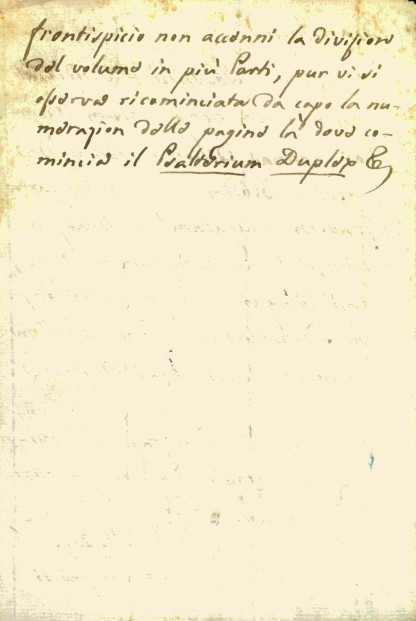 frontispicio non accenni la divisione
del volume in più Parti, pur vi si
osserva ricominciata da capo la nu-
merazion delle pagine là dove co-
mincia il Psalterium Duplex &